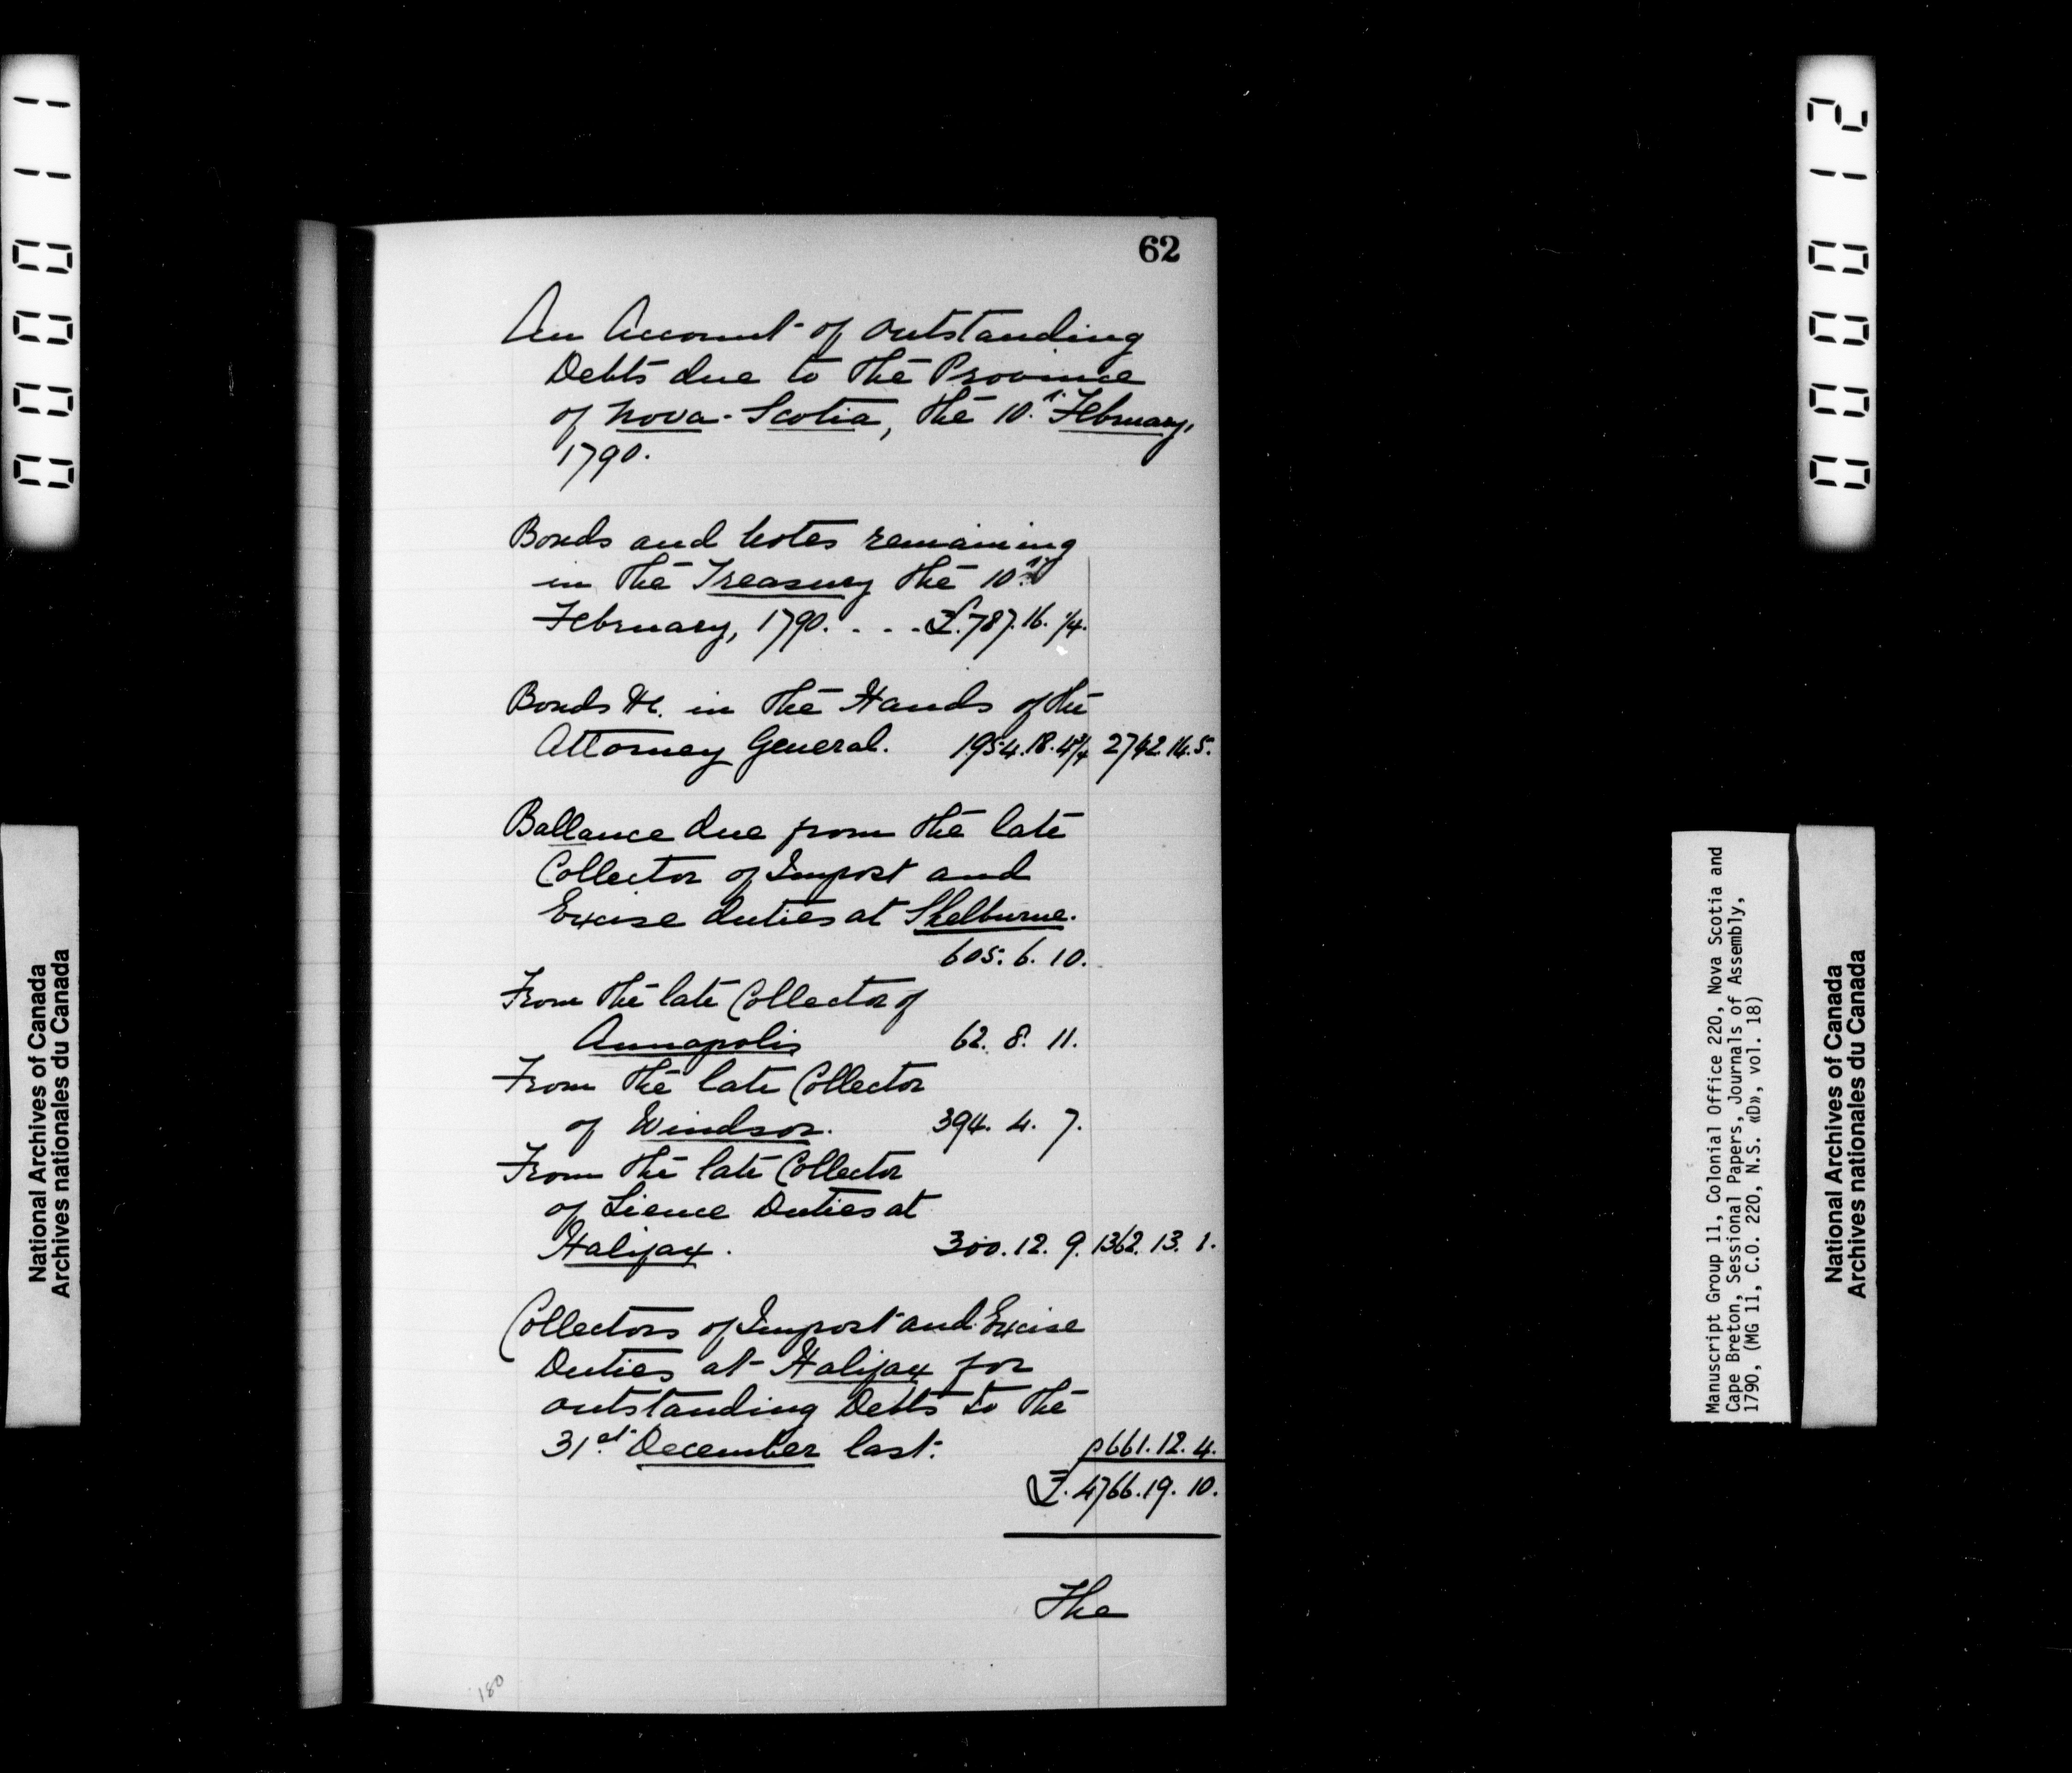 0000011
000012
62
An Account of outstanding
Debts due to the Province
of Nova-Scotia, the 10.th February,
1790.
Bonds and Notes remaining
in the Treasury the 10.th
February, 1790. . . . £.787.16. ¼.
Bonds &c. in the Hands of the
Attorney General. 1954.18.4¾ 2742.14.5.
Ballance due from the late
Collector of Impost and
Excise duties at Shelburne.
605. 6. 10.
From the late Collector of
Annapolis 62. 8. 11.
From the late Collector
of Windsor. 394. 4. 7.
From the late Collector
of Licence Duties at
Halifax. 300. 12. 9. 1362. 13. 1.
Collectors of Impost and Excise
Duties at Halifax for
outstanding Debts to the
31st December last. 661. 12. 4.
£. 4766. 19. 10.
The
180
National Archives of Canada
Archives nationales du Canada
Manuscript Group 11, Colonial Office 220, Nova Scotia and
Cape Breton, Sessional Papers, Journals of Assembly,
1790, (MG 11, C.O. 220, N.S. «D», vol. 18)
National Archives of Canada
Archives nationales du Canada